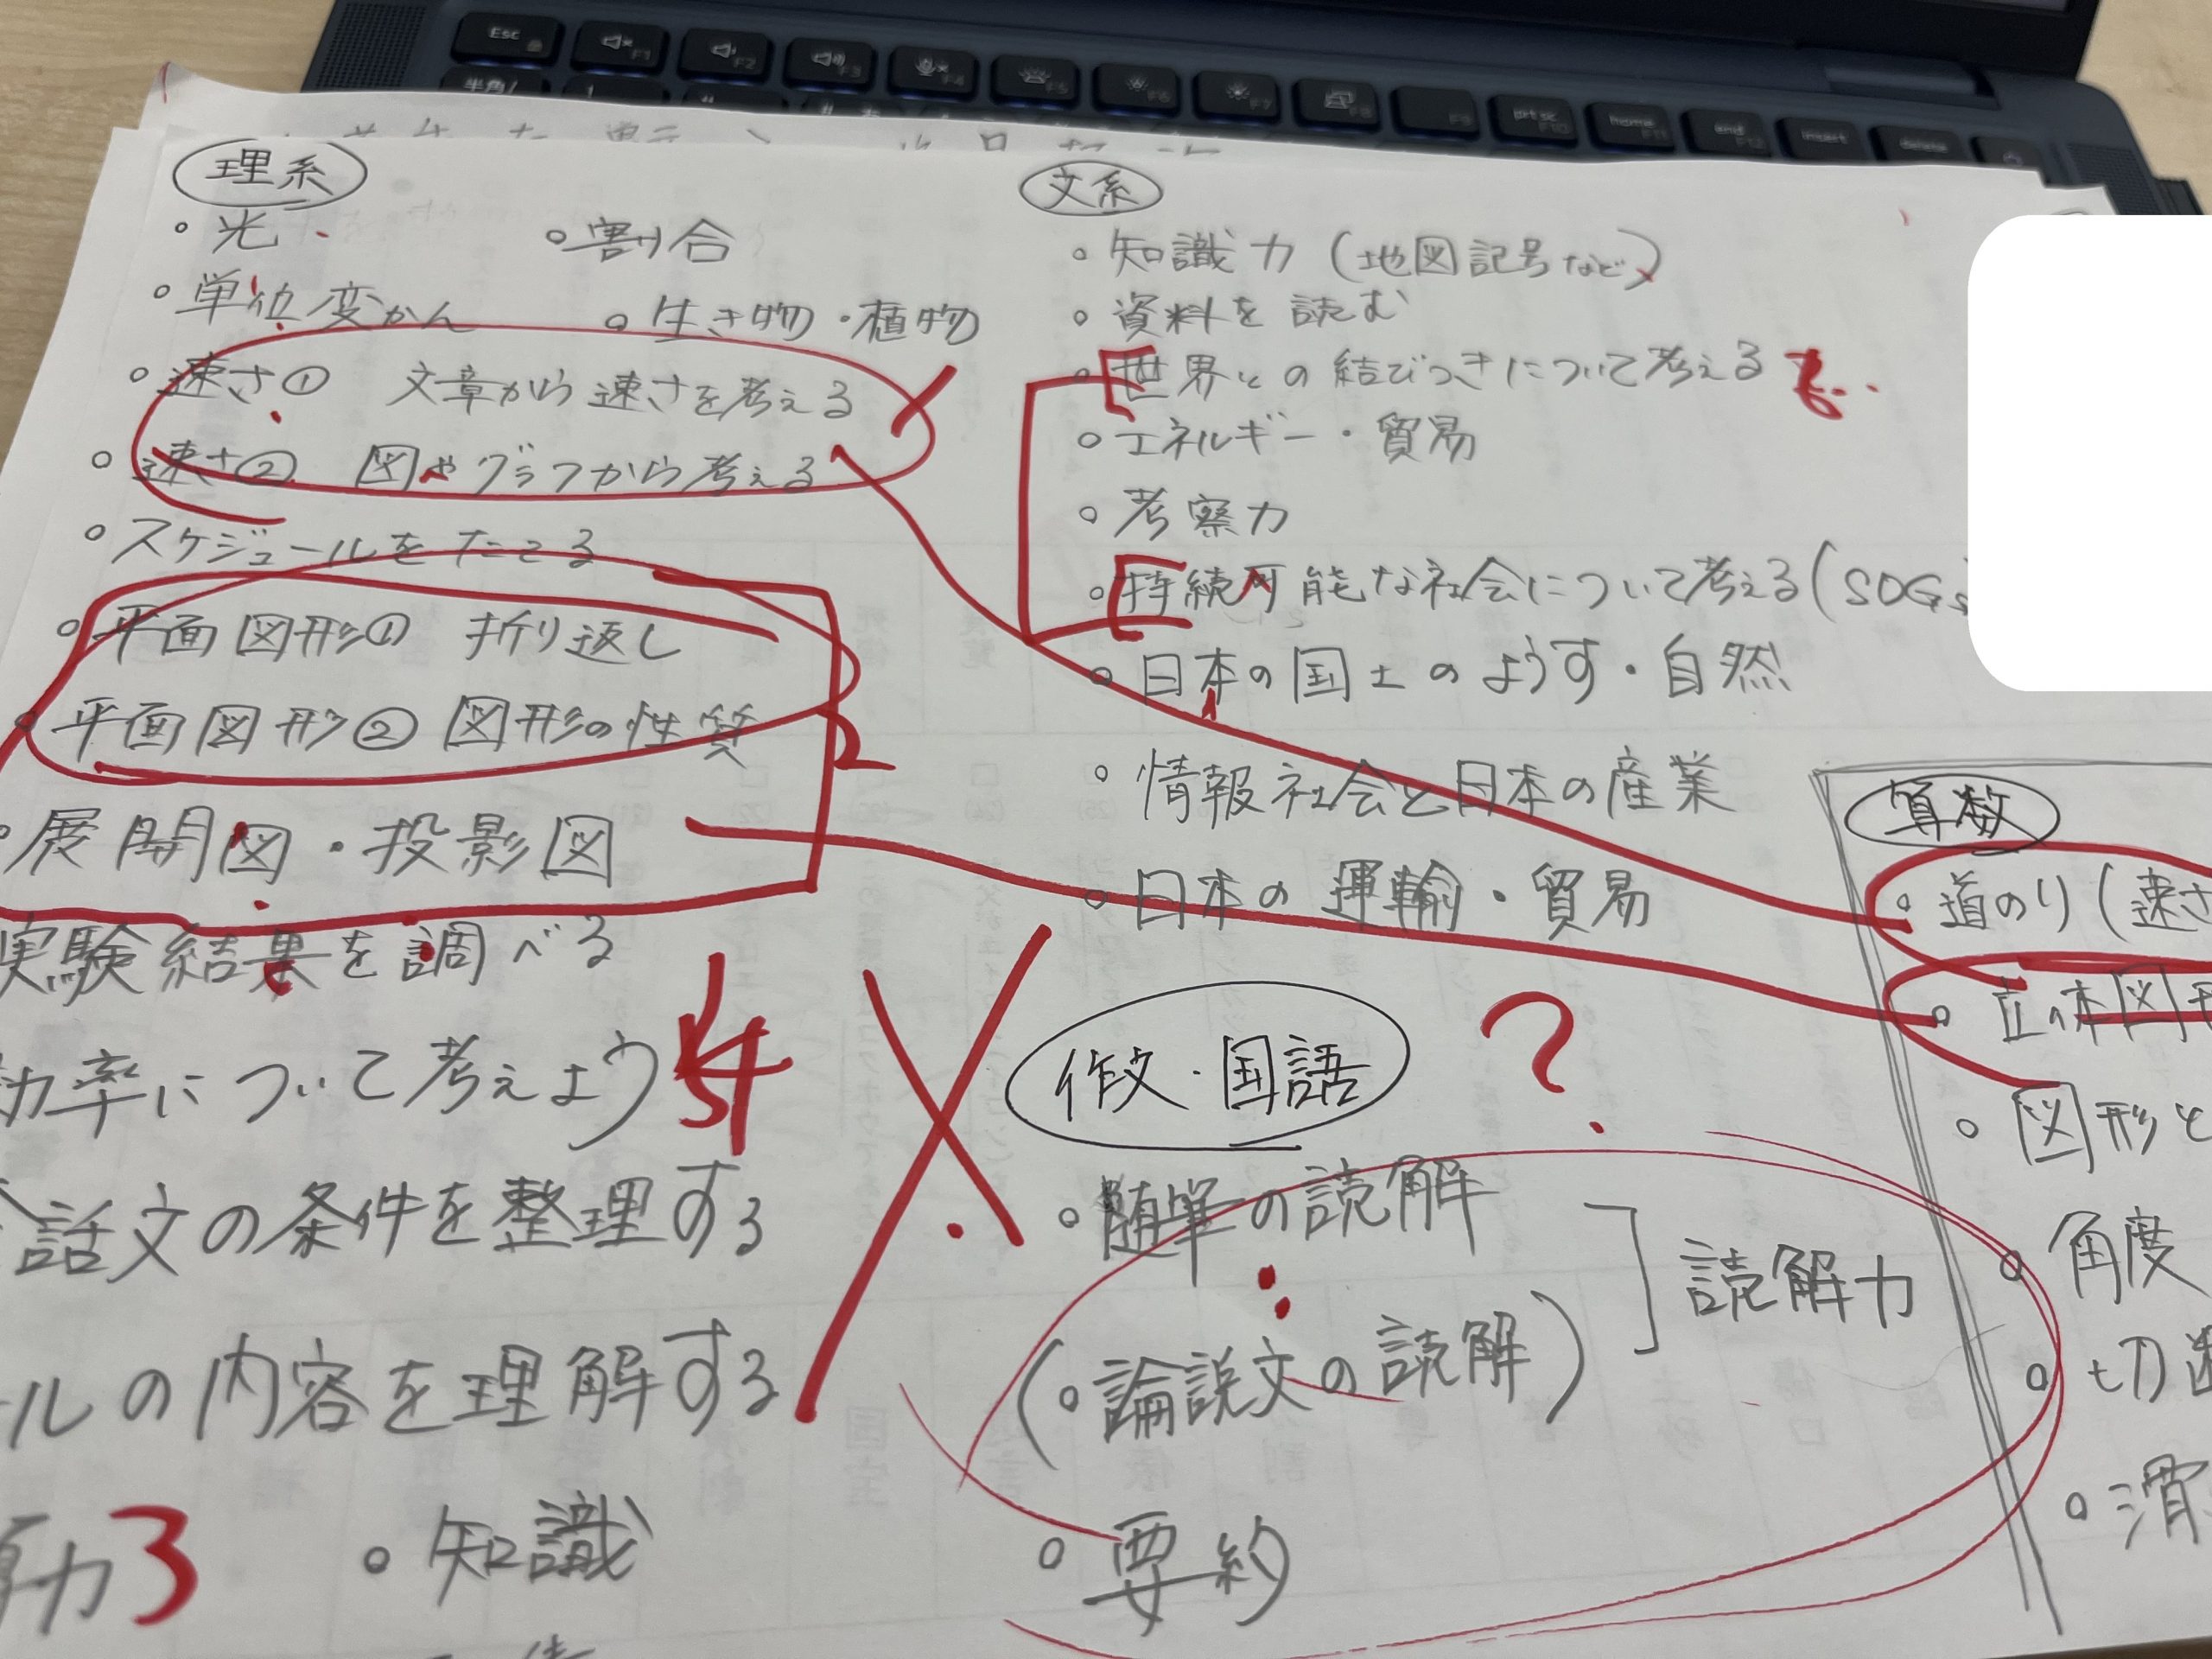 Esc
F1
F2
F3
F4
F5
F6
F7
F8
F9
prt sc
F10
home
F11
end
F12
insert
delete
半角/
理系
・光
・割合
・単位変かん
・生き物・植物
・速さ① 文章から速さを考える
・速さ② 図やグラフから考える
・スケジュールをたてる
・平面図形① 折り返し
・平面図形② 図形の性質
2
・展開図・投影図
実験結果を調べる
効率について考えよう
話文の条件を整理する
ールの内容を理解する
力3
・知識
文系
・知識力(地図記号など)
・資料を読む
・世界との結びつきについて考える
・エネルギー・貿易
・考察力
・持続可能な社会について考える(SDGs
・日本の国土のようす・自然
・情報社会と日本の産業
・日本の運輸・貿易
作文・国語
?
・随筆の読解
(・論説文の読解)
読解力
・要約
算数
・道のり(速さ
・立体図形
・図形と
・角度
・切